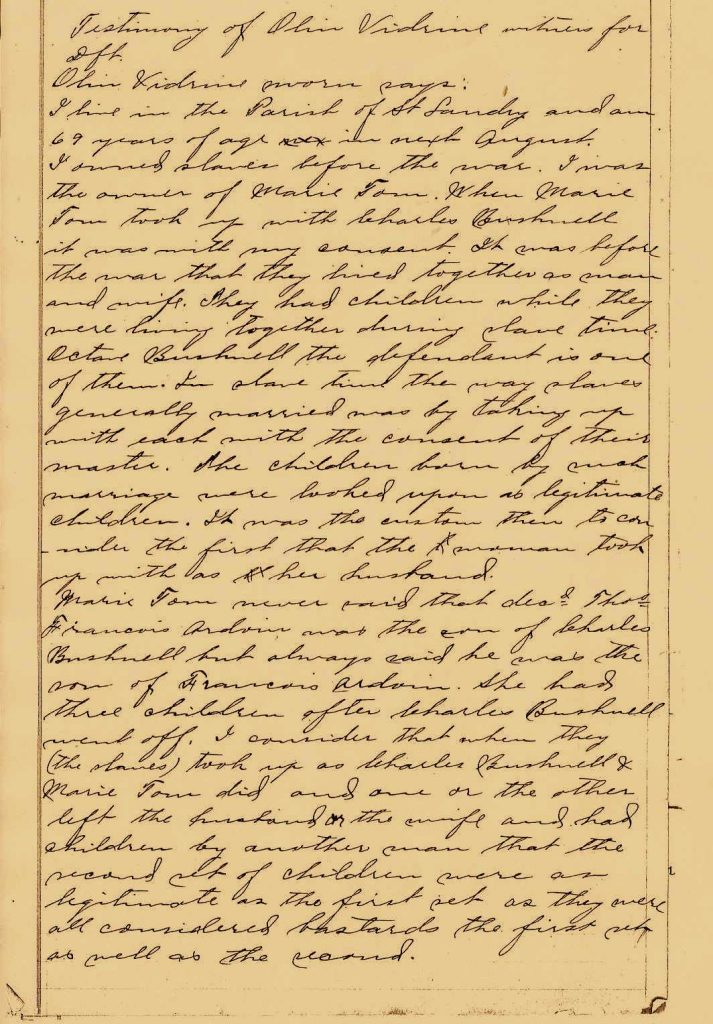 Testimony of Olin Vidrine witness for
Dft.
Olin Vidrine sworn says:
I live in the Parish of St Landry and am
69 years of age in next August.
I owned slaves before the war. I was
the owner of Marie Tom. When Marie
Tom took up with Charles Bushnell
it was with my consent. It was before
the war that they lived together as man
and wife. They had children while they
were living together during slave time.
Octave Bushnell the defendant is one
of them. In slave time the way slaves
generally married was by taking up
with each with the consent of their
master. The children born by such
marriage were looked upon as legitimate
children. It was the custom then to con
-sider the first that the woman took
up with as her husband.
Marie Tom never said that decd. Thos
Francois Ardoin was the son of Charles
Bushnell but always said he was the
son of Francois Ardoin. She had
three children after Charles Bushnell
went off. I consider that when they
(the slaves) took up as Charles Bushnell &
Marie Tom did and one or the other
left the husband or the wife and had
children by another man that the
second set of children were as
legitimate as the first set as they were
all considered bastards the first set
as well as the second.